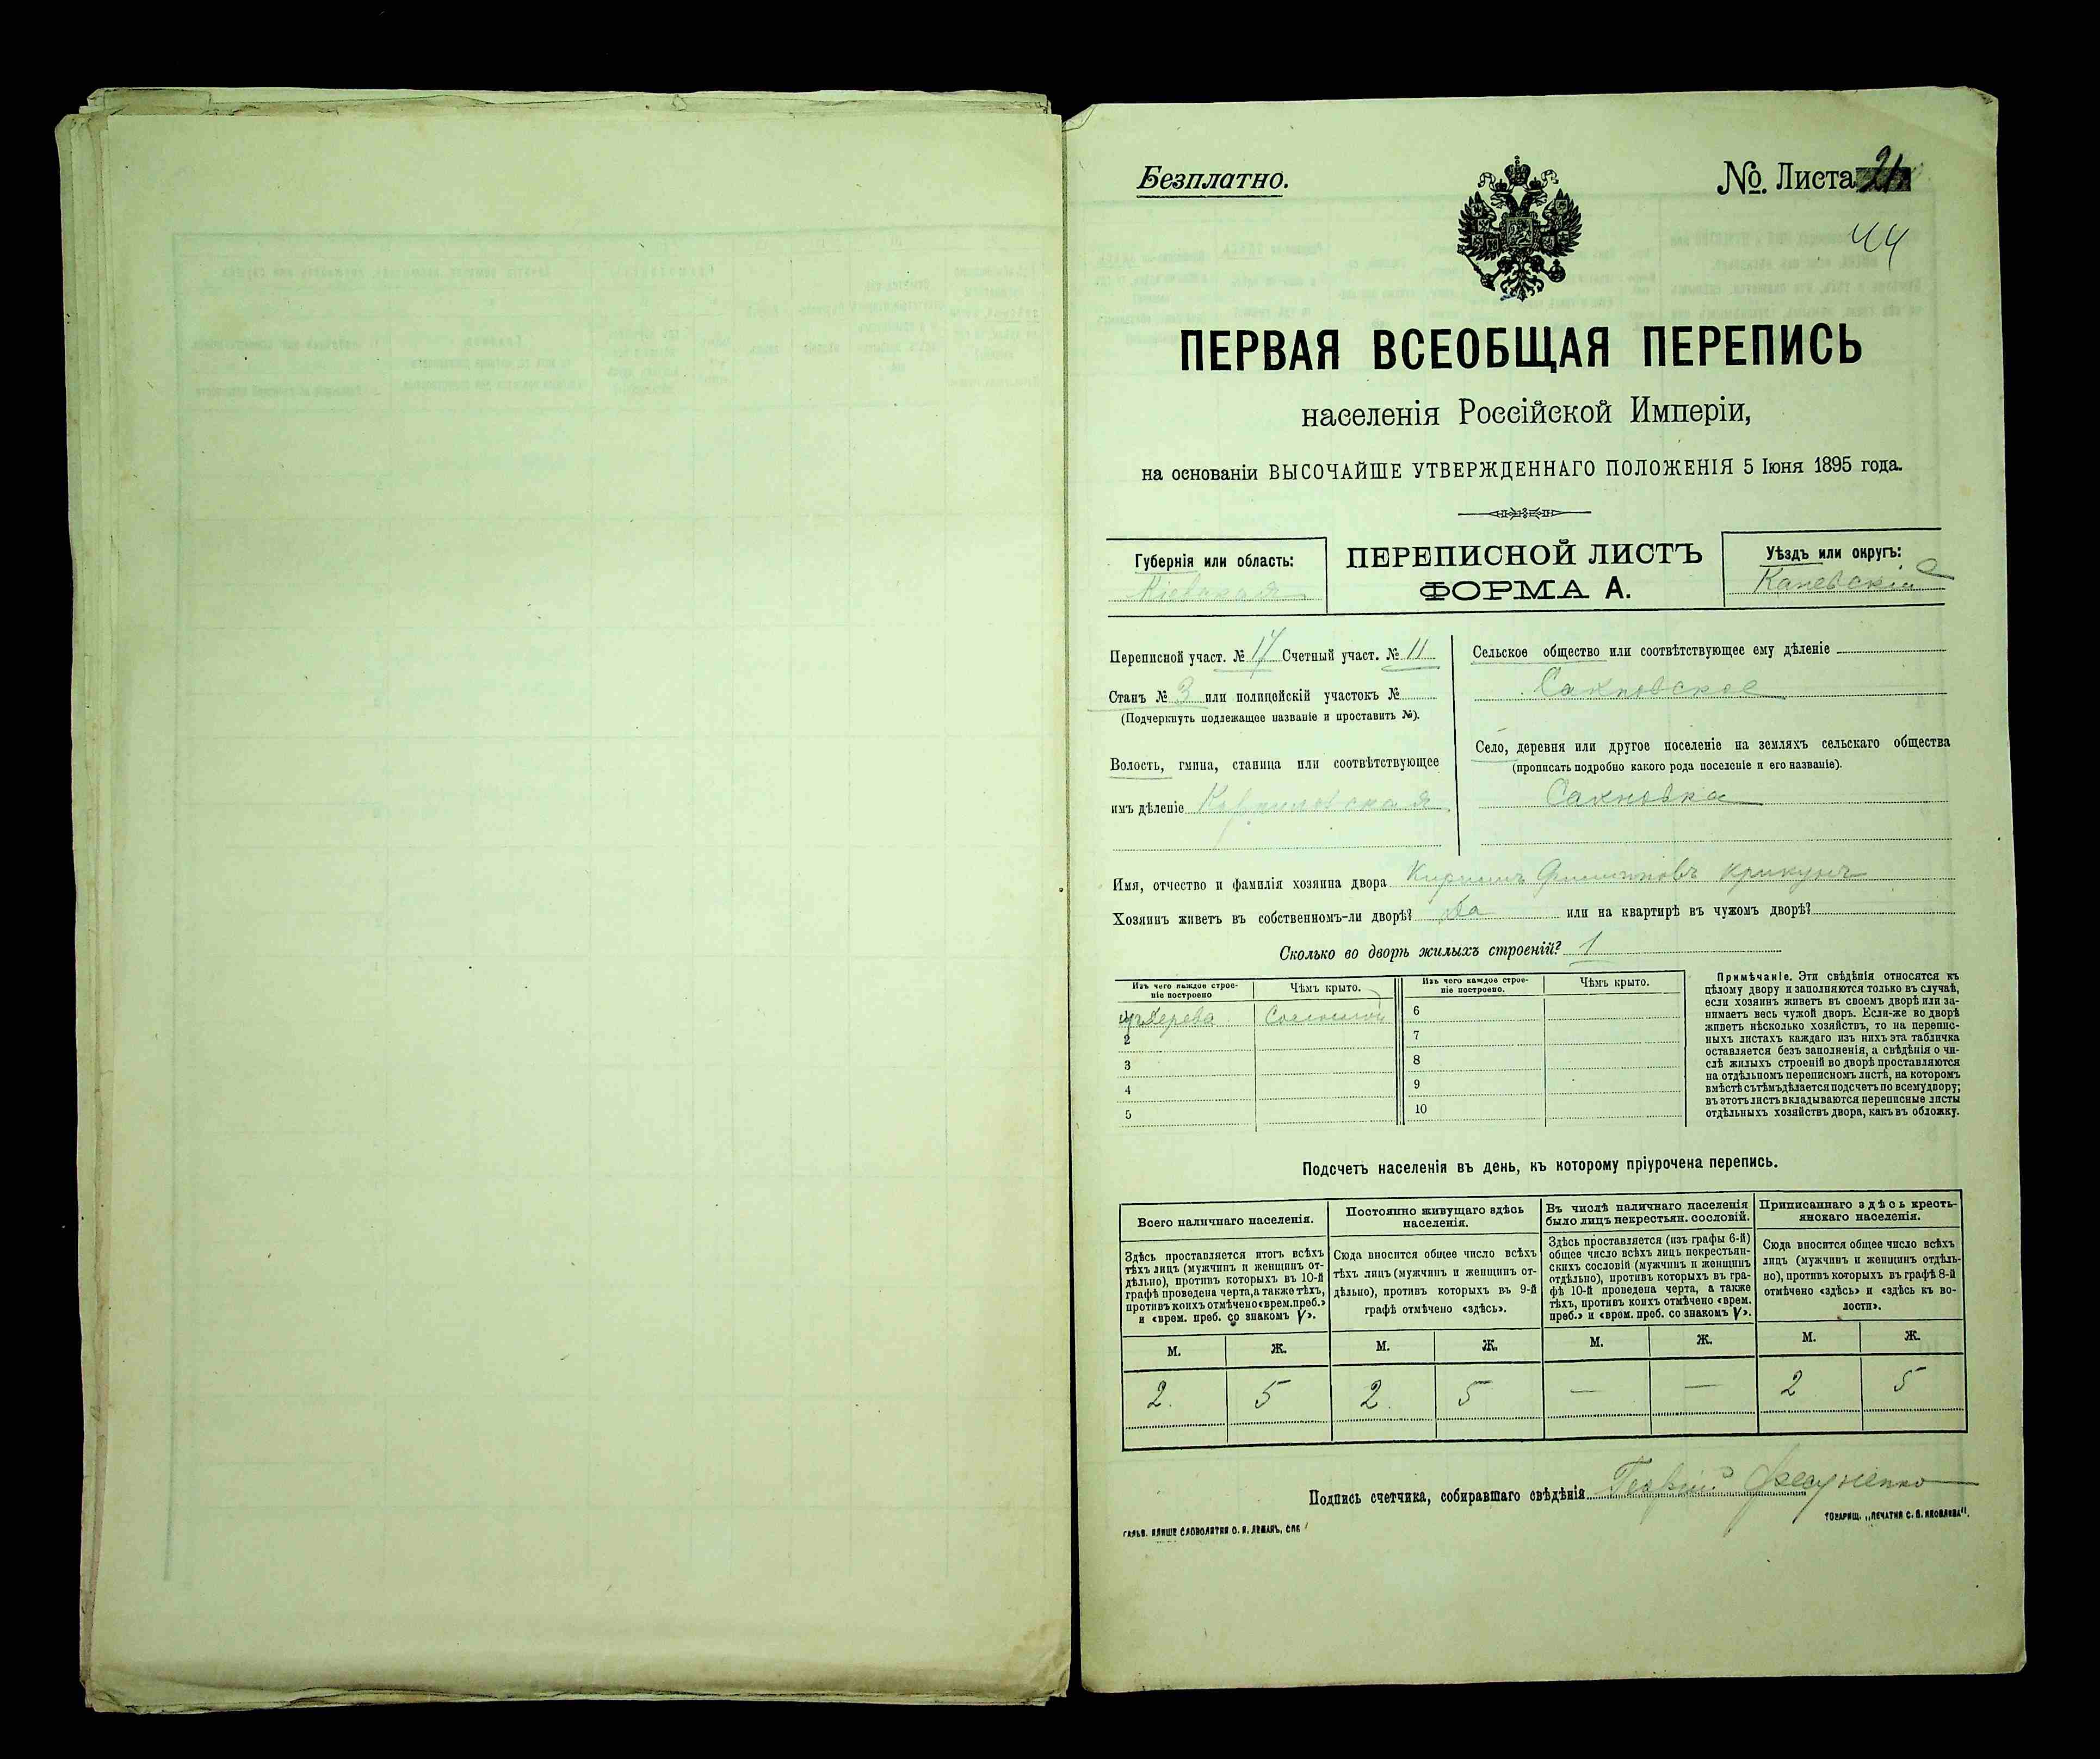 Безплатно.
№. Листа 21
44
ПЕРВАЯ ВСЕОБЩАЯ ПЕРЕПИСЬ
населенія Россійской Имперіи,
на основаніи ВЫСОЧАЙШЕ УТВЕРЖДЕННАГО ПОЛОЖЕНІЯ 5 Іюня 1895 года.
Губернія или область:
Кіевская
ПЕРЕПИСНОЙ ЛИСТЪ
ФОРМА А.
Уѣздъ или округъ:
Каневскій
Переписной участ. № 17 Счетный участ. № 11
Станъ № 3 или полицейскій участокъ №
(Подчеркнуть подлежащее названіе и проставить №).
Волость, гмина, станица или соотвѣтствующее
имъ дѣленіе
Сельское общество или соотвѣтствующее ему дѣленіе
Сахновское
Село, деревня или другое поселеніе на земляхъ сельскаго общества
(прописать подробно какого рода поселеніе и его названіе).
Сахновка
Имя, отчество и фамилія хозяина двора Кирилъ Филиповъ Крикунъ
Хозяинъ живетъ въ собственномъ-ли дворѣ? Да или на квартирѣ въ чужомъ дворѣ?
Сколько во дворѣ жилыхъ строеній? 1
Изъ чего каждое строе-
ніе построено
Чѣмъ крыто.
Изъ чего каждое строе-
ніе построено.
Чѣмъ крыто.
изъ дерева Соломой
2
3
4
5
6
7
8
9
10
Примѣчаніе. Эти свѣдѣнія относятся къ
цѣлому двору и заполняются только въ случаѣ,
если хозяинъ живетъ въ своемъ дворѣ или за-
нимаетъ весь чужой дворъ. Если-же во дворѣ
живетъ нѣсколько хозяйствъ, то на перепис-
ныхъ листахъ каждаго изъ нихъ эта табличка
оставляется безъ заполненія, а свѣдѣнія о чи-
слѣ жилыхъ строеній во дворѣ проставляются
на отдѣльномъ переписномъ листѣ, на которомъ
вмѣстѣ съ тѣмъ дѣлается подсчетъ по всему двору;
въ этотъ листъ вкладываются переписные листы
отдѣльныхъ хозяйствъ двора, какъ въ обложку.
Подсчетъ населенія въ день, къ которому пріурочена перепись.
Всего наличнаго населенія.
Здѣсь проставляется итогъ всѣхъ
тѣхъ лицъ (мужчинъ и женщинъ от-
дѣльно), противъ которыхъ въ 10-й
графѣ проведена черта, а также тѣхъ,
противъ коихъ отмѣчено «врем. преб.»
и «врем. преб. со знакомъ V».
Постоянно живущаго здѣсь
населенія.
Сюда вносится общее число всѣхъ
тѣхъ лицъ (мужчинъ и женщинъ от-
дѣльно), противъ которыхъ въ 9-й
графѣ отмѣчено «здѣсь».
Въ числѣ наличнаго населенія
было лицъ некрестьян. сословій.
Здѣсь проставляется (изъ графы 6-й)
общее число всѣхъ лицъ некрестьян-
скихъ сословій (мужчинъ и женщинъ
отдѣльно), противъ которыхъ въ гра-
фѣ 10-й проведена черта, а также
тѣхъ, противъ коихъ отмѣчено «врем.
преб.» и «врем. преб. со знакомъ V».
Приписаннаго здѣсь кресть-
янскаго населенія.
Сюда вносится общее число всѣхъ
лицъ (мужчинъ и женщинъ отдѣль-
но), противъ которыхъ въ графѣ 8-й
отмѣчено «здѣсь» и «здѣсь къ во-
лости».
М. Ж. М. Ж. М. Ж. М. Ж.
2. 5 2. 5 — — 2 5
Подпись счетчика, собиравшаго свѣдѣнія Георгій
ГАЛЬВ. КЛИШЕ СЛОВОЛИТНИ О. И. ЛЕМАНЪ, СПБ
ТОВАРИЩ. „ПЕЧАТНЯ С. П. ЯКОВЛЕВА".